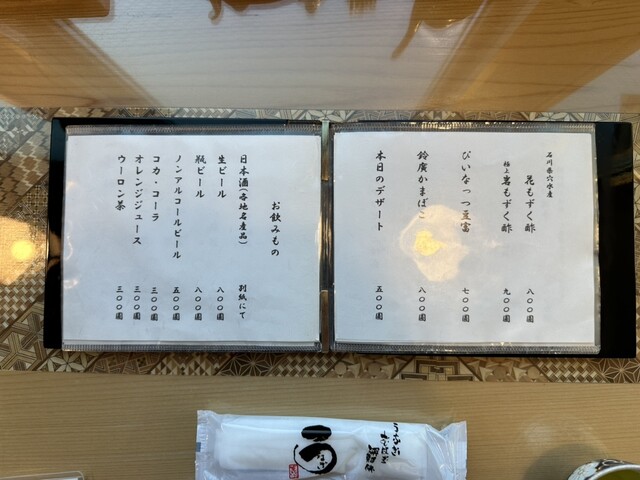 石川県穴水産
花もずく酢 八〇〇圓
極上岩もずく酢 九〇〇圓
ぴいなっつ豆富 七〇〇圓
鈴廣かまぼこ 八〇〇圓
本日のデザート 五〇〇圓
お飲みもの
日本酒(各地名産品) 別紙にて
生ビール 八〇〇圓
瓶ビール 八〇〇圓
ノンアルコールビール 五〇〇圓
コカ・コーラ 三〇〇圓
オレンジジュース 三〇〇圓
ウーロン茶 三〇〇圓
うなぎ